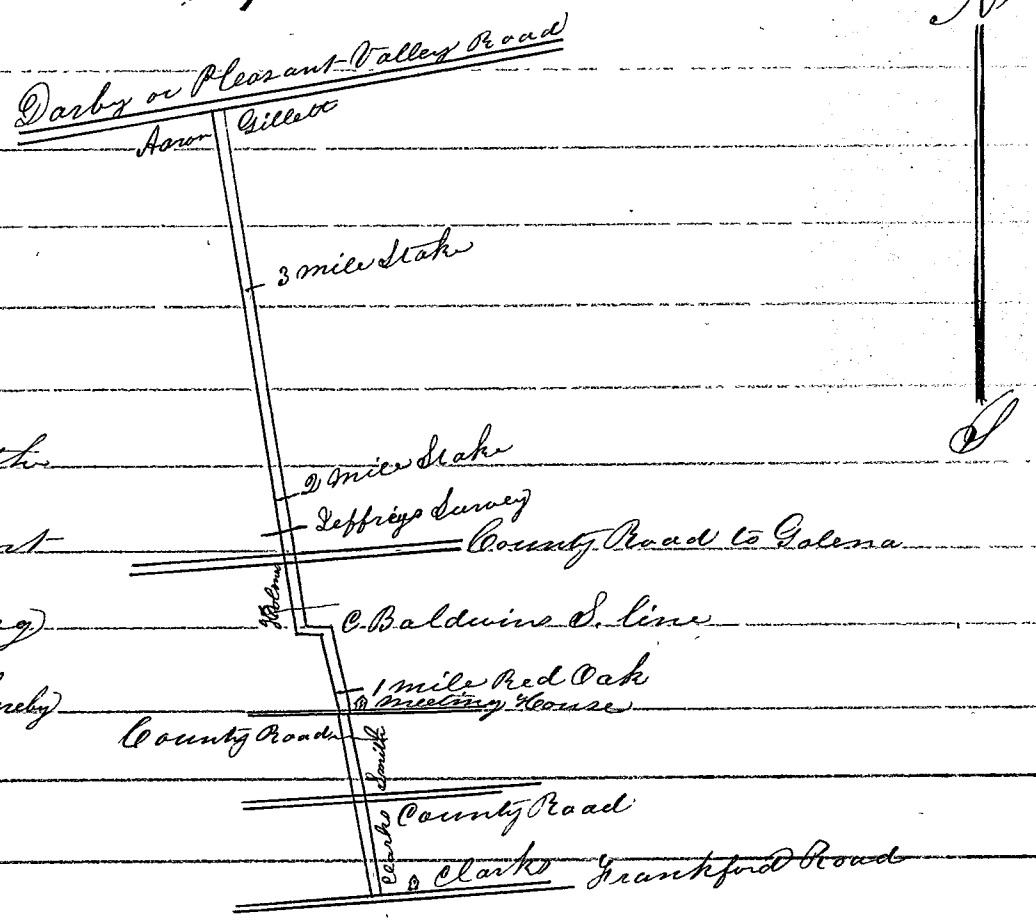 N
Darby or Pleasant Valley Road
Aaron Gillett
3 mile Stake
S
2 mile Stake
Jeffreys Survey
County Road to Galena
Holmes
C. Baldwins S. line
1 mile Red Oak
Meeting House
County Road
Smith
County Road
Clarks
Clarks
Frankford Road